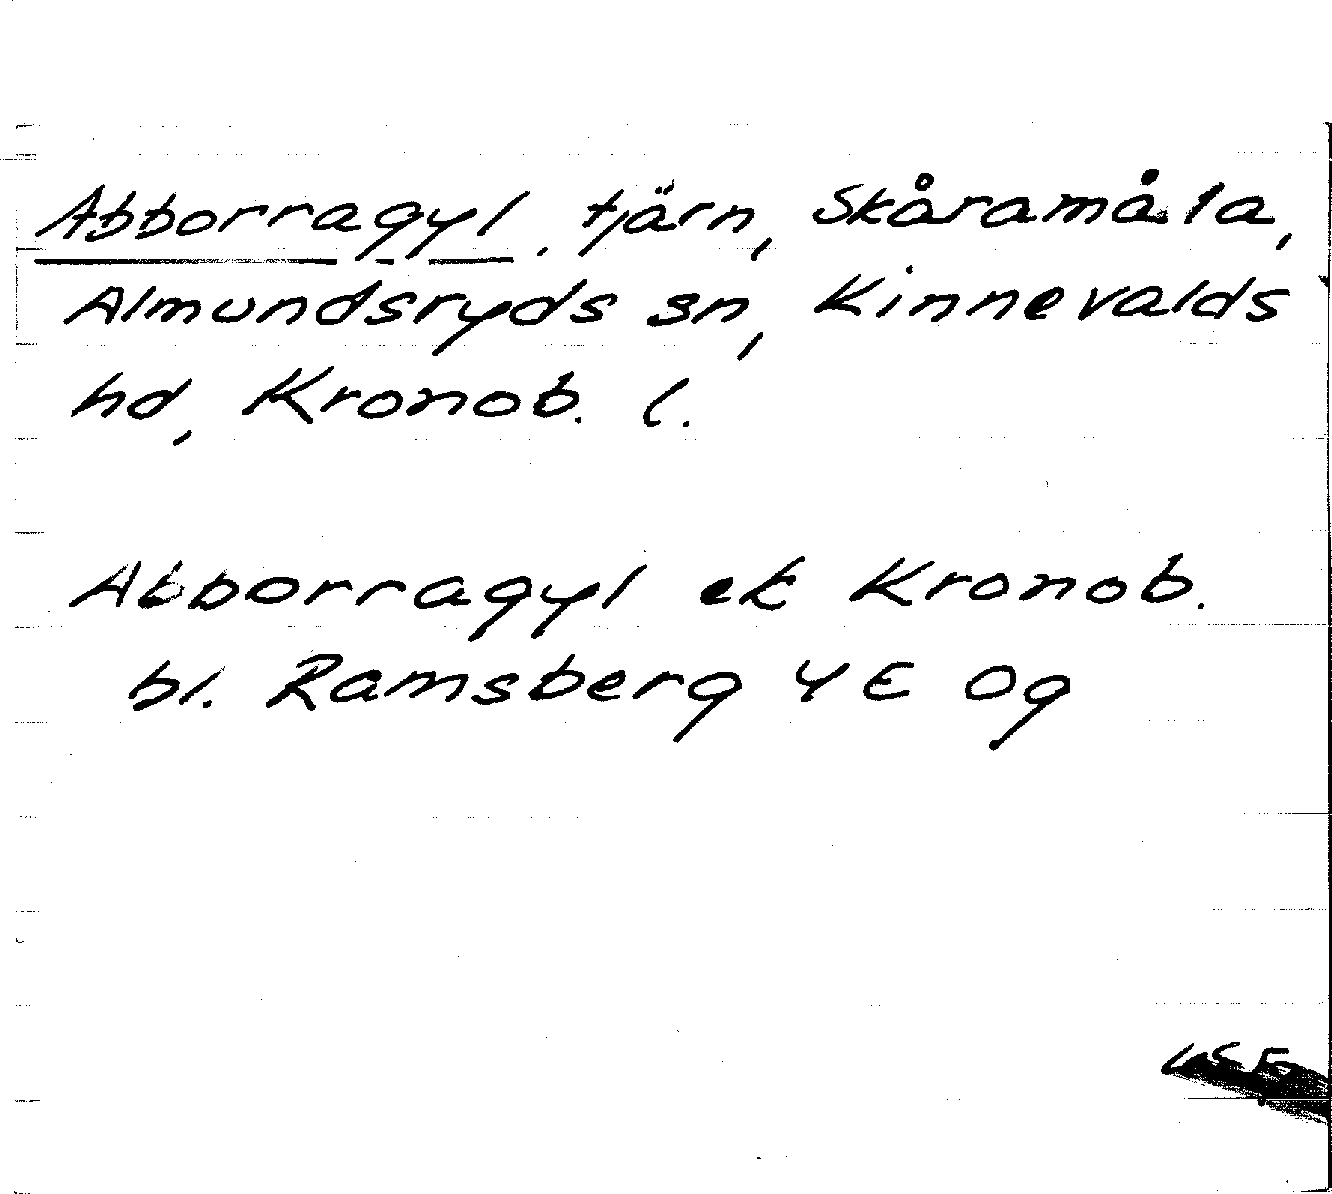 Abborragyl, tjärn, Skåramåla,
Almundsryds sn, Kinnevalds
hd, Kronob. l.
Abborragyl ek Kronob.
bl. Ramsberg 4 E Og